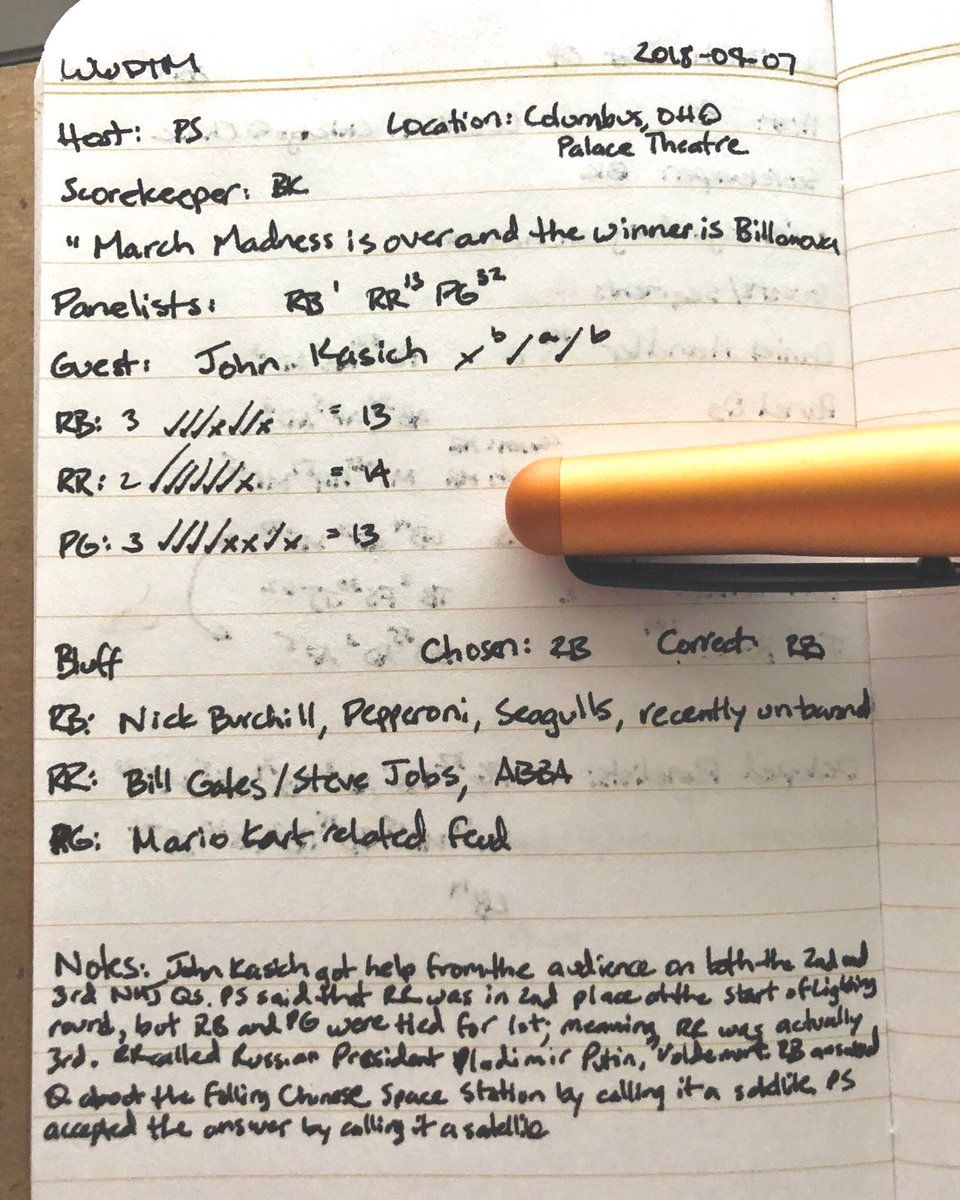 WWDTM 2018-04-07
Host: PS Location: Columbus, OHIO
Palace Theatre
Scorekeeper: BK
"March Madness is over and the winner is Billanova
Panelists: RB¹ RR¹³ PG³²
Guest: John Kasich x ᵇ / ᵃ / ᵇ
RB: 3 ///x//x = 13
RR: 2 //////x = 14
PG: 3 ////xx/x = 13
Bluff Chosen: RB Correct: RB
RB: Nick Burchill, Pepperoni, Seagulls, recently unbanned
RR: Bill Gates/Steve Jobs, ABBA
PG: Mario Kart related feud
Notes: John Kasich got help from the audience on both the 2nd and
3rd NMJ Qs. PS said that RR was in 2nd place at the start of lighting
round, but RB and PG were tied for 1st; meaning, RR was actually
3rd. RR called Russian President Vladimir Putin, "Voldemort. RB answered
Q about the falling Chinese Space Station by calling it a satellite. PS
accepted the answer by calling it a satellite